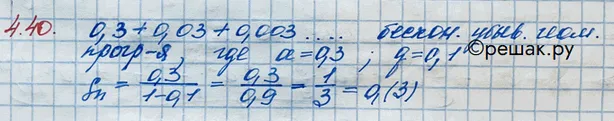 4.40. 0,3 + 0,03 + 0,003 .... бескон. убыв. геом.
прогр-я, где a = 0,3 ; q = 0,1
Sn = 0,3/1-0,1 = 0,3/0,9 = 1/3 = 0,(3)
©решак.ру